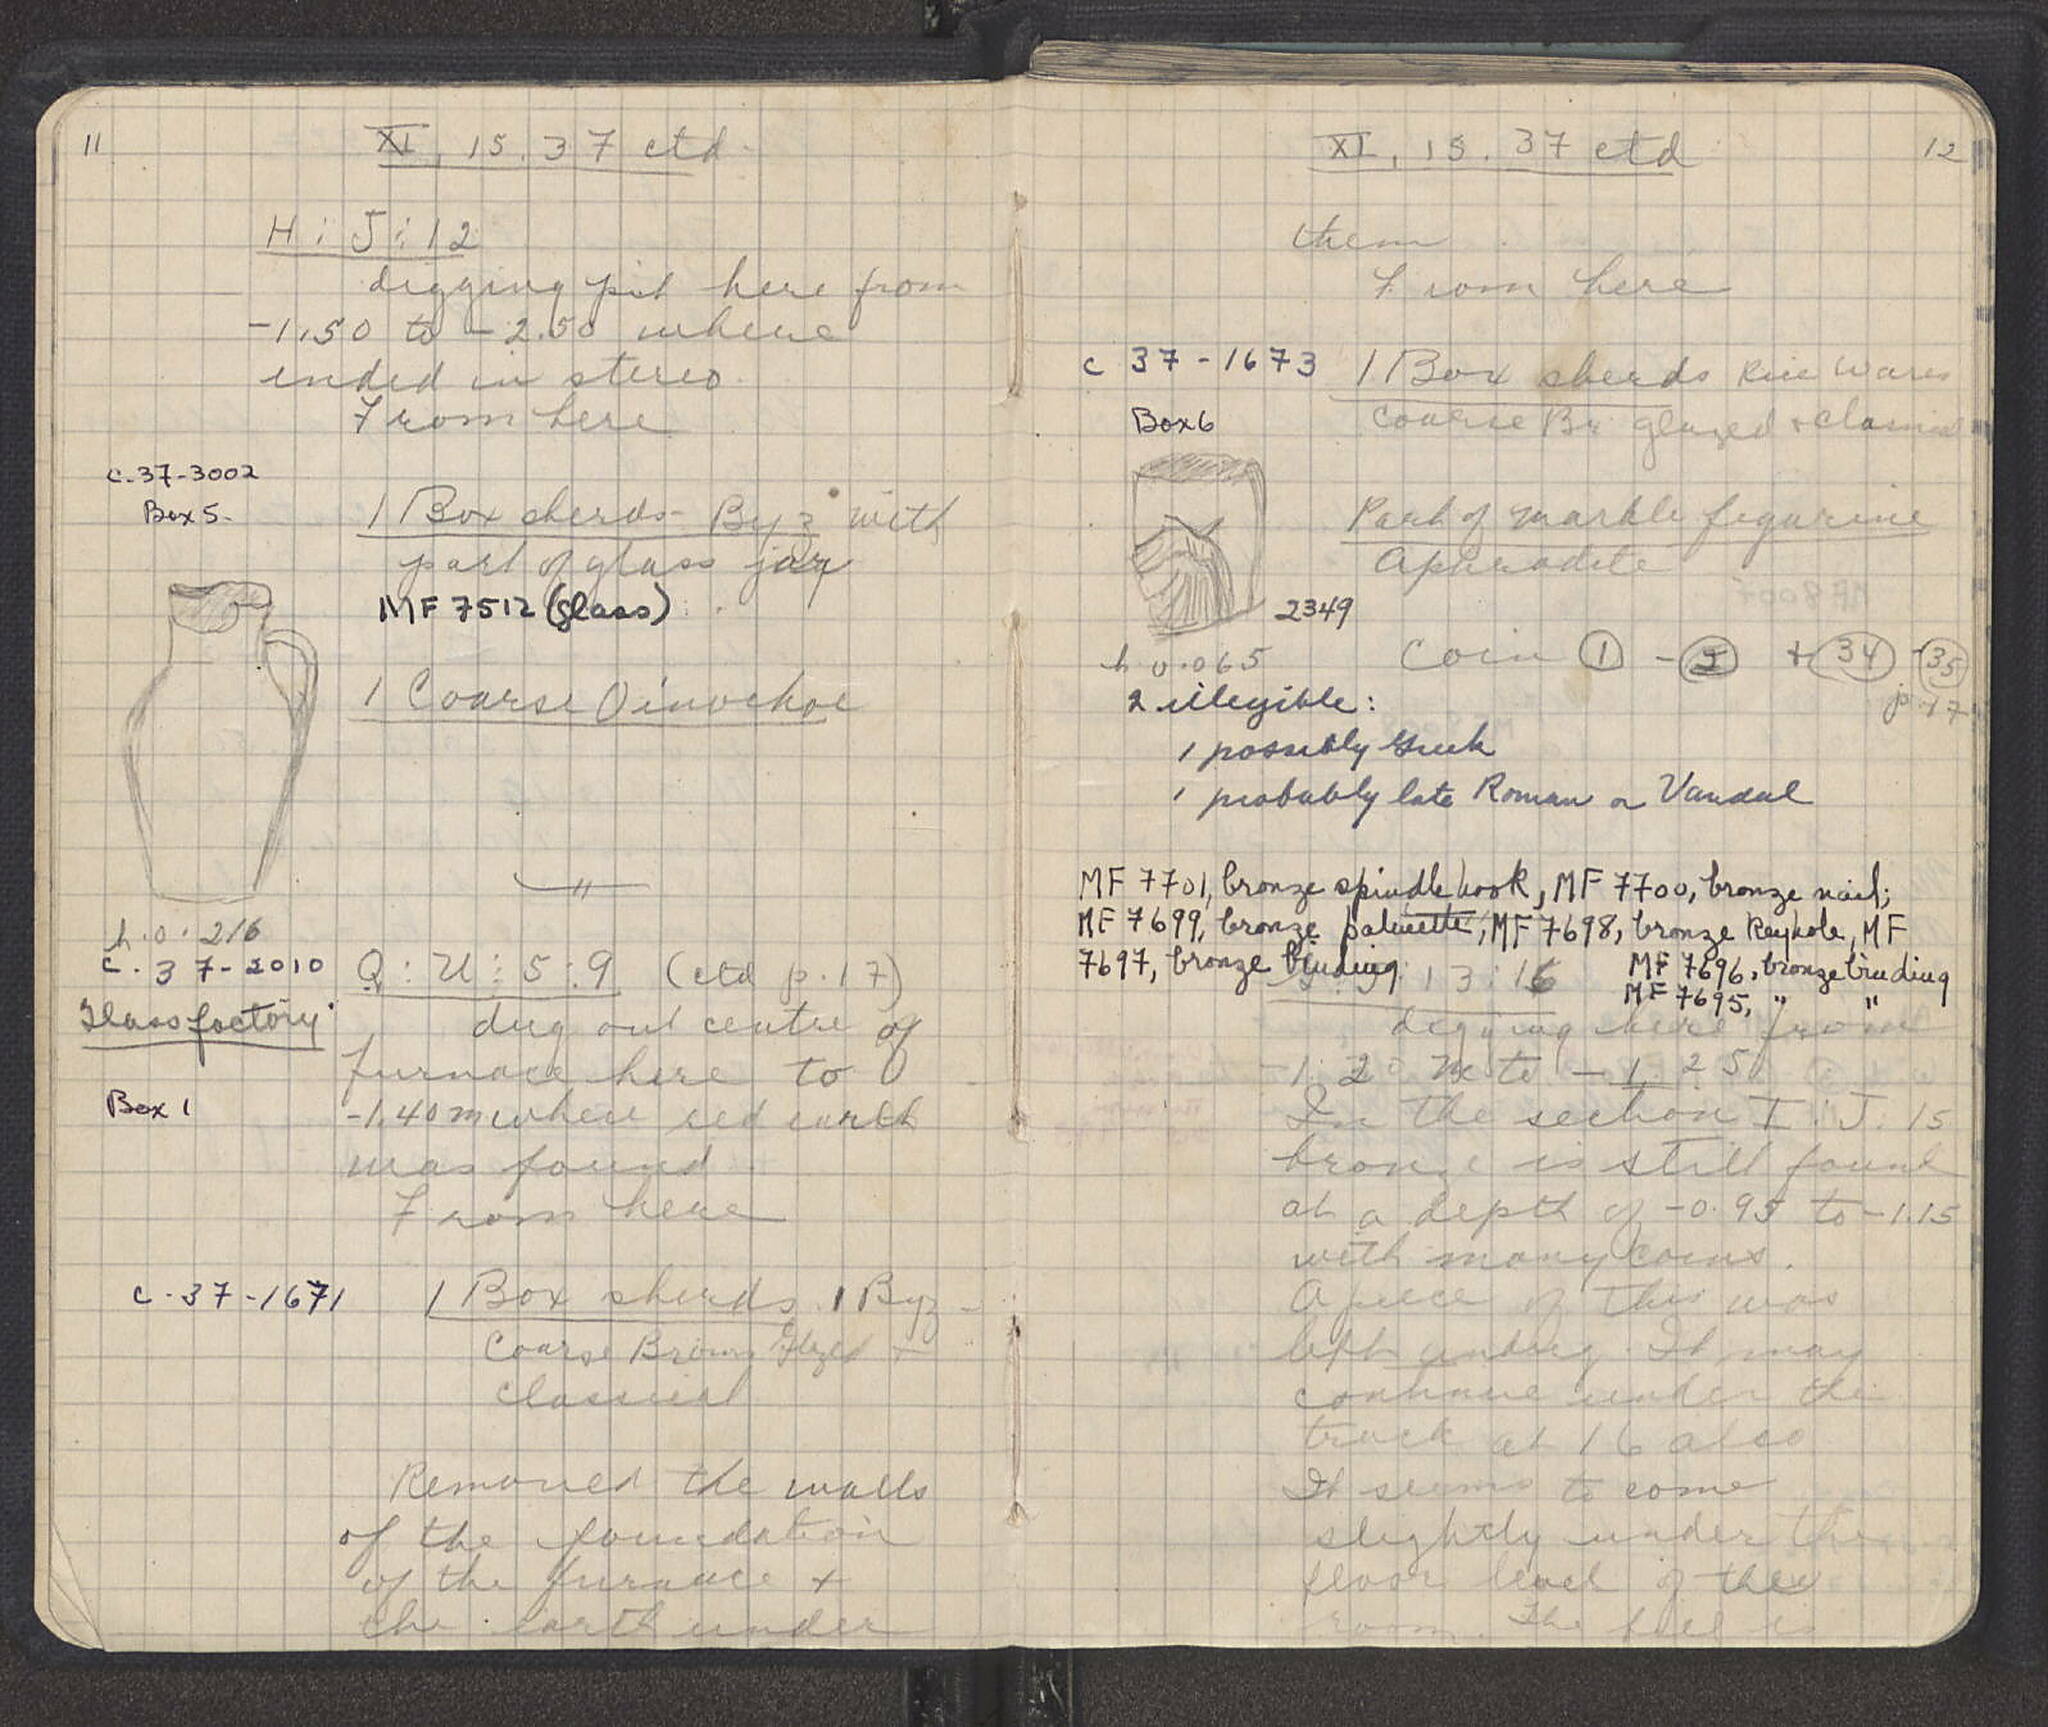 11
XI, 15.37 ctd
H:J:12
digging pit here from
-1.50 to -2.50 where
ended in stereo
From here
c.37-3002
Box 5.
1 Box sherds - Byz with
part of glass jar
MF 7512 (glass)
1 Coarse Oinochoe
h.0.216
c.37-2010
Q:U:5:9 (ctd p.17)
Glass factory
dug out centre of
furnace here to
Box 1
-1.40 m where red earth
was found
From here
c.37-1671
1 Box sherds 1 Byz -
Coarse Brown Glazed +
classical
Removed the walls
of the foundation
of the furnace +
the earth under
XI, 15.37 ctd
12
them
From here
c 37-1673
1 Box sherds Rice Wares
Box 6
coarse Br glazed + classical
Part of marble figurine
Aphrodite
2349
h 0.065
Coin 1 - 2 + 34 - 35
p.17
2 illegible:
1 possibly Greek
1 probably late Roman or Vandal
MF 7701, bronze spindle hook, MF 7700, bronze nail;
MF 7699, bronze palmette, MF 7698, bronze keyhole, MF
7697, bronze binding
MF 7696, bronze binding
MF 7695, " "
J:13:16
digging here from
-1.20 m to -1.25
In the section I:J:15
bronze is still found
at a depth of -0.95 to -1.15
with many coins.
A piece of this was
left undug. It may
continue under the
track at 16 also
It seems to come
slightly under the
floor level of the
room. The fill is